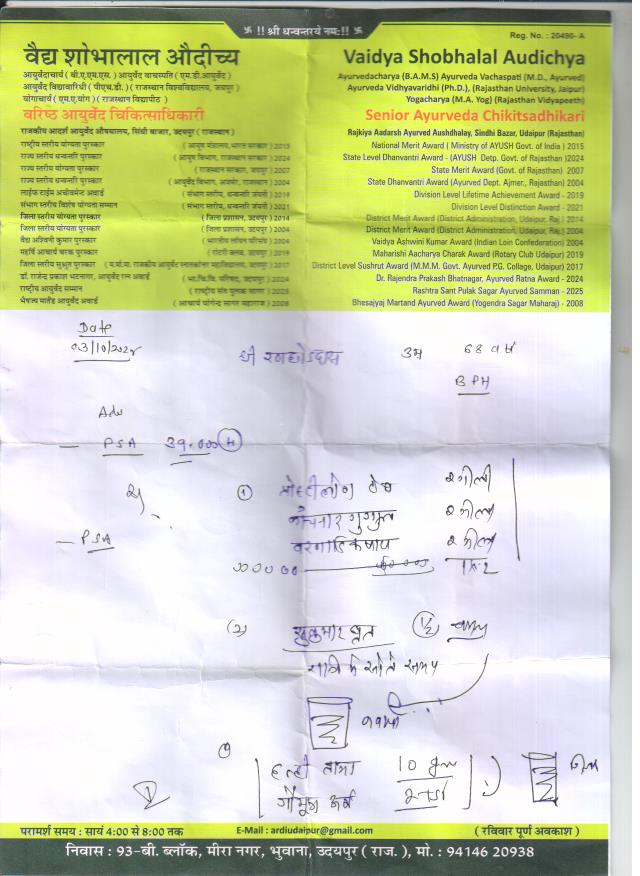 !! श्री धन्वन्तरये नमः !!
Reg. No. : 20490- A
वैद्य शोभालाल औदीच्य
आयुर्वेदाचार्य ( बी.ए.एम.एस. ) आयुर्वेद वाचस्पति ( एम.डी.आयुर्वेद )
आयुर्वेद विद्यावारिधी ( पीएच.डी. ) ( राजस्थान विश्वविद्यालय, जयपुर )
योगाचार्य ( एम.ए.योग ) ( राजस्थान विद्यापीठ )
वरिष्ठ आयुर्वेद चिकित्साधिकारी
राजकीय आदर्श आयुर्वेद औषधालय, सिंधी बाजार, उदयपुर ( राजस्थान )
राष्ट्रीय स्तरीय योग्यता पुरस्कार ( आयुष मंत्रालय, भारत सरकार ) 2015
राज्य स्तरीय धन्वन्तरि पुरस्कार ( आयुष विभाग, राजस्थान सरकार ) 2024
राज्य स्तरीय योग्यता पुरस्कार ( राजस्थान सरकार, जयपुर ) 2007
राज्य स्तरीय धन्वन्तरि पुरस्कार ( आयुर्वेद विभाग, अजमेर, राजस्थान ) 2004
लाईफ टाईम अचीवमेन्ट अवार्ड ( संभाग स्तरीय, धन्वंतरि जयंती ) 2019
संभाग स्तरीय विशेष योग्यता सम्मान ( संभाग स्तरीय, धन्वंतरि जयंती ) 2021
जिला स्तरीय योग्यता पुरस्कार ( जिला प्रशासन, उदयपुर ) 2014
जिला स्तरीय योग्यता पुरस्कार ( जिला प्रशासन, उदयपुर ) 2004
वैद्य अश्विनी कुमार पुरस्कार ( भारतीय लॉयन परिसंघ ) 2004
महर्षि आचार्य चरक पुरस्कार ( रोटरी क्लब, उदयपुर ) 2019
जिला स्तरीय सुश्रुत पुरस्कार ( म.मो.मा. राजकीय आयुर्वेद स्नातकोत्तर महाविद्यालय, उदयपुर ) 2017
डॉ. राजेन्द्र प्रकाश भटनागर, आयुर्वेद रत्न अवार्ड ( भा.चि.वि. परिषद, उदयपुर ) 2024
राष्ट्रीय आयुर्वेद सम्मान ( राष्ट्रीय संत पुलक सागर ) 2025
भैषज्य मार्तंड आयुर्वेद अवार्ड ( आचार्य योगेन्द्र सागर महाराज ) 2008
Vaidya Shobhalal Audichya
Ayurvedacharya (B.A.M.S) Ayurveda Vachaspati (M.D., Ayurved)
Ayurveda Vidhyavaridhi (Ph.D.), (Rajasthan University, Jaipur)
Yogacharya (M.A. Yog) (Rajasthan Vidyapeeth)
Senior Ayurveda Chikitsadhikari
Rajkiya Aadarsh Ayurved Aushdhalay, Sindhi Bazar, Udaipur (Rajasthan)
National Merit Award ( Ministry of AYUSH Govt. of India ) 2015
State Level Dhanvantri Award - (AYUSH Detp. Govt. of Rajasthan )2024
State Merit Award (Govt. of Rajasthan) 2007
State Dhanvantri Award (Ayurved Dept. Ajmer., Rajasthan) 2004
Division Level Lifetime Achievement Award - 2019
Division Level Distinction Award - 2021
District Merit Award (District Administration, Udaipur, Raj.) 2014
District Merit Award (District Administration, Udaipur, Raj.) 2004
Vaidya Ashwini Kumar Award (Indian Loin Confederation) 2004
Maharishi Aacharya Charak Award (Rotary Club Udaipur) 2019
District Level Sushrut Award (M.M.M. Govt. Ayurved P.G. Collage, Udaipur) 2017
Dr. Rajendra Prakash Bhatnagar, Ayurved Ratna Award - 2024
Rashtra Sant Pulak Sagar Ayurved Samman - 2025
Bhesajyaj Martand Ayurved Award (Yogendra Sagar Maharaj) - 2008
Date
श्री रणछोड़दास उम्र 68 वर्ष
BPH
Adv
PSA
① २ गोली
कांचनार गुग्गुल २ गोली
PSA
② सुकुमार घृत ½ चम्मच
रात्रि के सोते समय
हल्दी ताजा 10 gm
गौमूत्र अर्क
परामर्श समय : सायं 4:00 से 8:00 तक
E-Mail : ardiudaipur@gmail.com
( रविवार पूर्ण अवकाश )
निवास : 93-बी. ब्लॉक, मीरा नगर, भुवाना, उदयपुर ( राज. ), मो. : 94146 20938